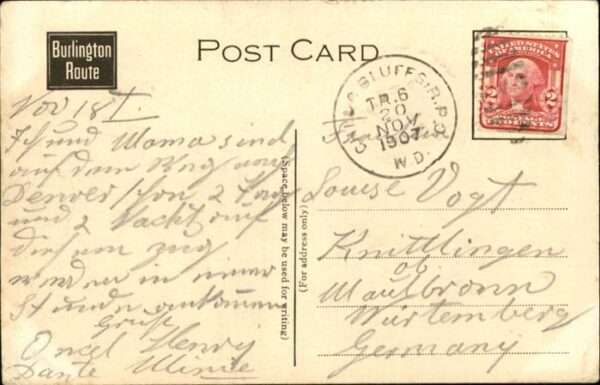 Burlington
Route
POST CARD
BLUFFS R.P.O.
TR.6
20
NOV
1907
W.D.
UNITED STATES OF AMERICA
2 2
POSTAGE
TWO CENTS
Nov 18
Ich und Mama sind
auf dem Weg von
Denver schon 2 Tag
und 2 Nacht auf
diesem zug
werden in einer
Stunde ankommen
Gruss
Oncel Henry
Tante Minnie
(Space below may be used for writing)
(For address only)
Louise Vogt
Knittlingen
og
Maulbronn
Würtemberg
Germany